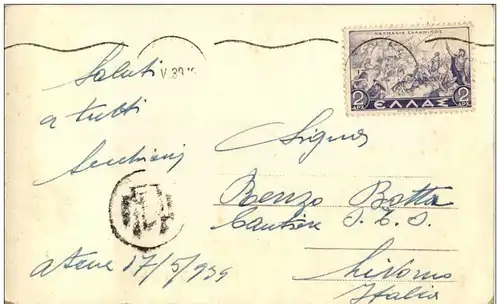 ΝΑΥΜΑΧΙΑ ΣΑΛΑΜΙΝΟΣ
2 ΔΡΧ. ΕΛΛΑΣ 2 ΔΡΧ.
V 39
Saluti
a tutti
Atene 17/5/939
Signor
Renzo Botta
Cantiere O.T.O.
Livorno
Italia